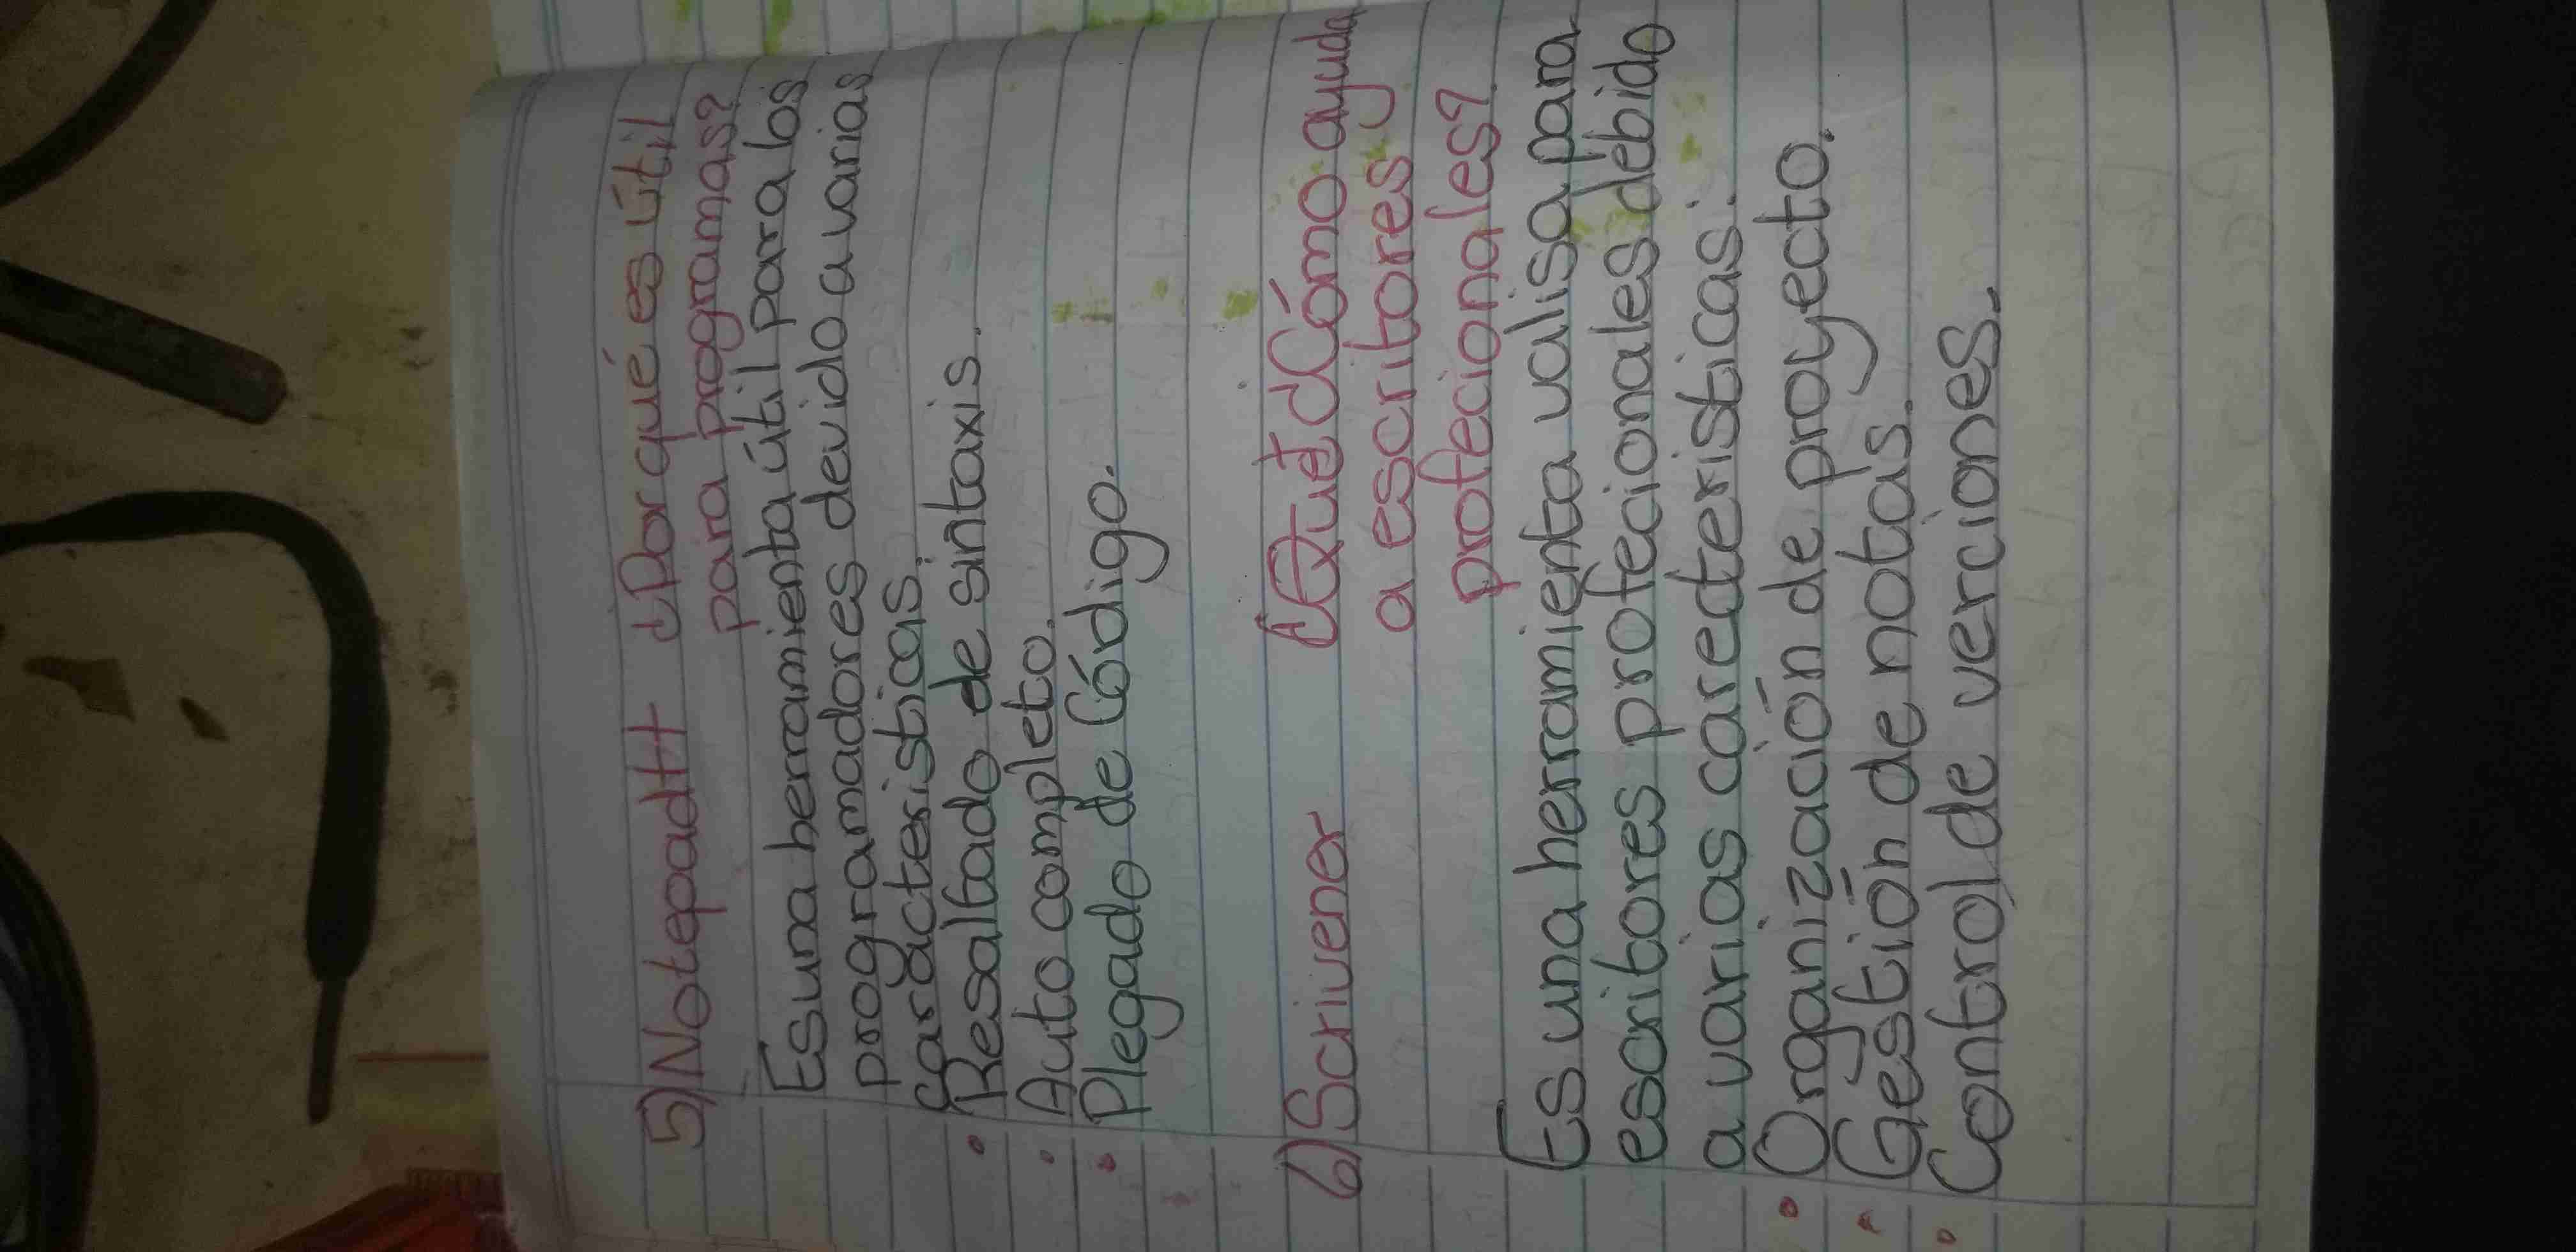 5) Notepad++ ¿Por qué es útil
para programas?
Es una herramienta útil para los
programadores devido a varias
carácteristicas:
• Resaltado de sintaxis.
• Auto completo.
• Plegado de Código.
6) Scrivener ¿Cómo ayuda
a escritores
profecionales?
Es una herramienta valisa para
escritores profecionales debido
a varias caredteristicas:
• Organización de proyecto.
• Gestión de notas.
• Control de verciones.